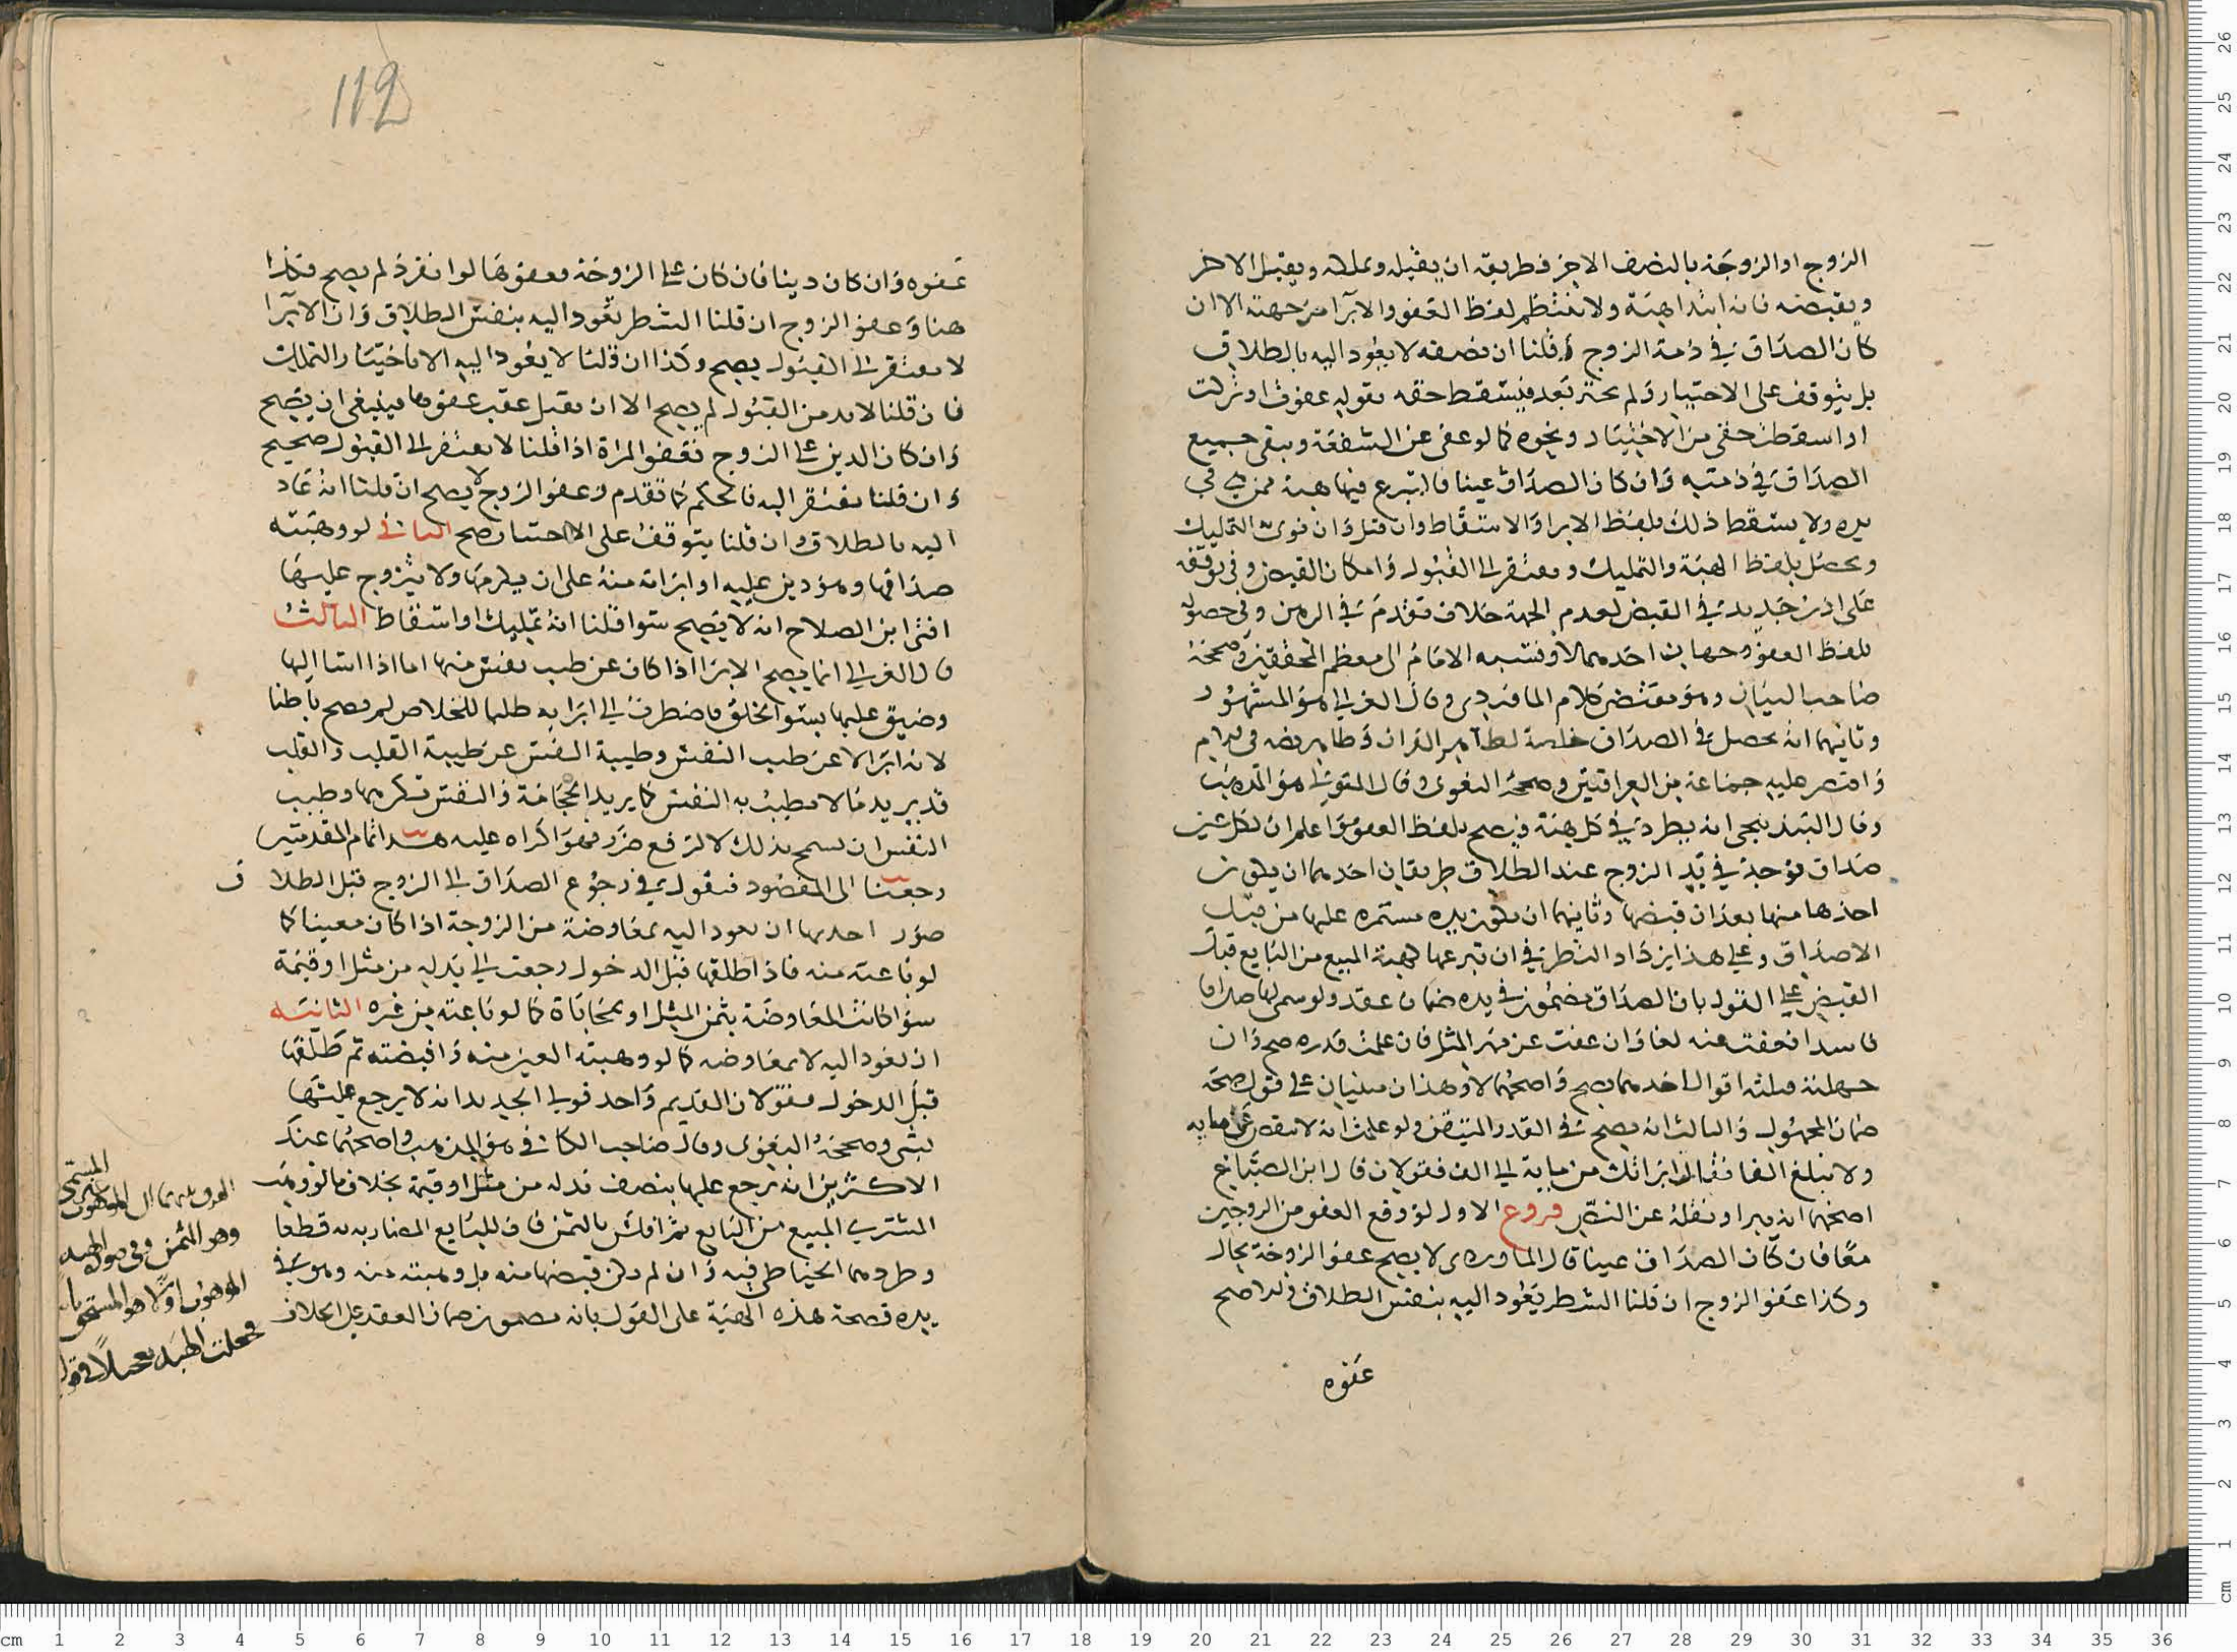 الزوج او الزوجة بالنصف الاخر فطريقه ان يقبله ويملكه ويقبل الاخر
ويقبضه فانه ابتدا هبة ولا ينتظم لفظ العفو والابرا من جهته الا ان
كان الصداق في ذمة الزوج وقلنا ان نصفه لا يعود اليه بالطلاق
بل يتوقف على الاختيار ولم يختر بعد فيسقط حقه بقوله عفوت او تركت
او اسقطت حقي من الاختيار ونحوه كما لو عفى عن الشفعة ويبقى جميع
الصداق في ذمته وان كان الصداق عينا فالتبرع فيها هبة ممن هي في
يده ولا يسقط ذلك بلفظ الابرا والاسقاط وان قبل وان نوى التمليك
ويحصل بلفظ الهبة والتمليك ويفتقر الى القبول وامكان القبض وفي توقفه
على اذن جديد في القبض لعدم الجهة خلاف تقدم في الرهن وفي حصوله
بلفظ العفو وجهان احدهما لا ونسبه الامام الى معظم المحققين وصححه
صاحب البيان وهو مقتضى كلام الماوردي وقال الغزالي هو المشهور
وثانيهما انه يحصل في الصداق خاصة لظاهر القران وظاهر نصه في الام
واقتصر عليه جماعة من العراقيين وصححه البغوي وقال المتولي هو المذهب
وقال البندنيجي انه يطرد في كل هبة فيصح بلفظ العفو واعلم ان لكل عين
صداق توجد في يد الزوج عند الطلاق طريقان احدهما ان يكون
اخذها منها بعد ان قبضها وثانيهما ان تكون بيده مستمرة عليها من قبل
الاصداق وعلى هذا يزداد النظر في ان تبرعها كهبة المبيع من البايع قبل
القبض على القول بان الصداق مضمون في يده ضمان عقد ولو سمى لها صداقا
فاسدا فعفت عنه لغا وان عفت عن مهر المثل فان علمت قدره صح وان
جهلته فثلثه اقوال احدهما يصح واصحهما لا وهذان مبنيان على قول صحة
ضمان المجهول والثالث انه يصح في القدر المتيقن ولو علمت انه لا ينقص عن مايه
ولا يبلغ الفا فقالت ابراتك من ماية الى الف فقولان قال ابن الصباغ
اصحهما انه يبرا ونقله عن النص فروع الاول لو وقع العفو من الزوجين
معا فان كان الصداق عينا قال الماوردي لا يصح عفو الزوجة بحال
وكذا عفو الزوج ان قلنا الشطر يعود اليه بنفس الطلاق والا صح
عفوه
112
عفوه وان كان دينا فان كان على الزوجة فعفوها لو انفرد لم يصح فكذا
هنا وعفو الزوج ان قلنا الشطر يعود اليه بنفس الطلاق وان الابرا
لا يفتقر الى القبول يصح وكذا ان قلنا لا يعود اليه الا باختيار التملك
فان قلنا لابد من القبول لم يصح الا ان يقبل عقب عفوها فينبغي ان يصح
وان كان الدين على الزوج فعفو المراة اذا قلنا لا يفتقر الى القبول صحيح
وان قلنا يفتقر اليه فالحكم كما تقدم وعفو الزوج لا يصح ان قلنا انه عاد
اليه بالطلاق وان قلنا يتوقف على الاختيار صح الثاني لو وهبته
صداقها وهو دين عليه او ابراته منه على ان يكرمها ولا يتزوج عليها
افتى ابن الصلاح انه لا يصح سوا قلنا انه تمليك او اسقاط الثالث
قال الغزالي انما يصح الابرا اذا كان عن طيب نفس منها اما اذا اسا اليها
وضيق عليها بسو الخلق فاضطرت الى ابرايه طلبا للخلاص لم يصح باطنا
لانه ابرا لا عن طيب النفس وطيبة النفس غير طيبة القلب والقلب
قد يريد ما لا تطيب به النفس كما يريد الحجامة والنفس تكرهها وطيب
النفس ان تسمح بذلك لا لدفع ضرر فهو اكراه عليه هذا تمام المقدمتين
رجعنا الى المقصود فنقول في رجوع الصداق الى الزوج قبل الطلاق
صور احديها ان يعود اليه بمعاوضة من الزوجة اذا كان معينا كما
لو باعته منه فاذا طلقها قبل الدخول رجعت الى بدله من مثل او قيمة
سوا كانت المعاوضة بثمن المثل او بمحاباة كما لو باعته من غيره الثانية
ان يعود اليه لا بمعاوضه كما لو وهبته العين منه واقبضته ثم طلقها
قبل الدخول فقولان القديم واحد قولي الجديد انه لا يرجع عليها
بشى وصححه البغوي وقال صاحب الكافي هو المذهب واصحهما عند
الاكثرين انه يرجع عليها بنصف بدله من مثل او قيمة بخلاف ما لو وهب
المشتري المبيع من البايع ثم افلس بالثمن فان للبايع المضاربه به قطعا
وطردهما الحناطي فيه وان لم يكن قبضها منه بل وهبته منه وهو في
يده فصحة هذه الهبة على القول بانه مضمون ضمان العقد على الخلاف
وهو الثمن وفي صورة الهبه
الموهوب اولا هو المستحق
فجعلت الهبه